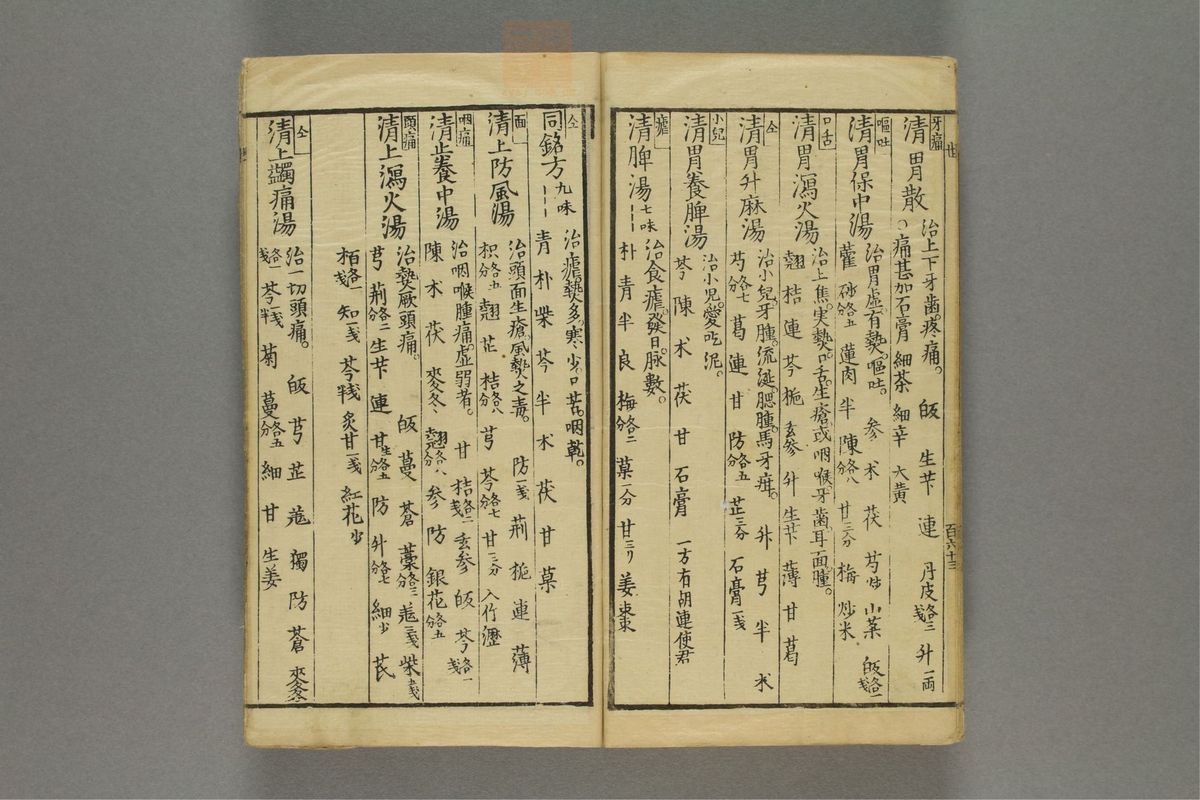 牙痛
清胃散
治上下牙齒疼痛。 皈 生芐 連 丹皮各三戔 升一両
○痛甚加石膏 細茶 細辛 大黄
嘔吐
清胃保中湯
治胃虛有熱嘔吐。 参 朮 茯 芍炒 山藥 皈各一戔
藿 砂各五分 蓮肉 半 陳各八分 甘三分 梅 炒米
口舌
清胃瀉火湯
治上焦実熱口舌生瘡或咽喉牙齒耳面腫。
翹 桔 連 芩 梔 玄参 升 生芐 薄 甘 葛
仝
清胃升麻湯
治小兒牙腫流涎腮腫馬牙疳。 升 芎 半 朮
芍各七分 葛 連 甘 防各五分 芷三分 石膏一戔
小兒
清胃養脾湯
治小兒愛吃泥。
芩 陳 朮 茯 甘 石膏 一方有胡連使君
瘧
清脾湯七味
治食瘧。發日脉數。
朴 青 半 良 梅各二分 菓一分 甘三リ 姜 棗
百六十三
仝
同銘方九味
治瘧熱多寒少口苦咽乾。
青 朴 柴 芩 半 朮 茯 甘 菓
面
清上防風湯
治頭面生瘡風熱之毒。 防一戔 荊 梔 連 薄
枳各五分 翹 芷 桔各八分 芎 芩各七分 甘三分 入竹瀝
咽痛
清上養中湯
治咽喉腫痛虛弱者。 甘 桔各二戔 玄参 皈 芩各一戔
陳 朮 茯 麥冬 翹各八分 参 防 銀花各五分
頭痛
清上瀉火湯
治熱厥頭痛。 皈 蔓 蒼 藁各三分 羌三戔 柴七戔
芎 荊各二分 生芐 連 甘生各五分 防 升各七分 細少 芪
栢各一戔 知一戔 芩半戔 炙甘一戔 紅花少
仝
清上蠲痛湯
治一切頭痛。 皈 芎 芷 羌 獨 防 蒼 麥各一戔
芩一戔半 菊 蔓各五分 細 甘 生姜